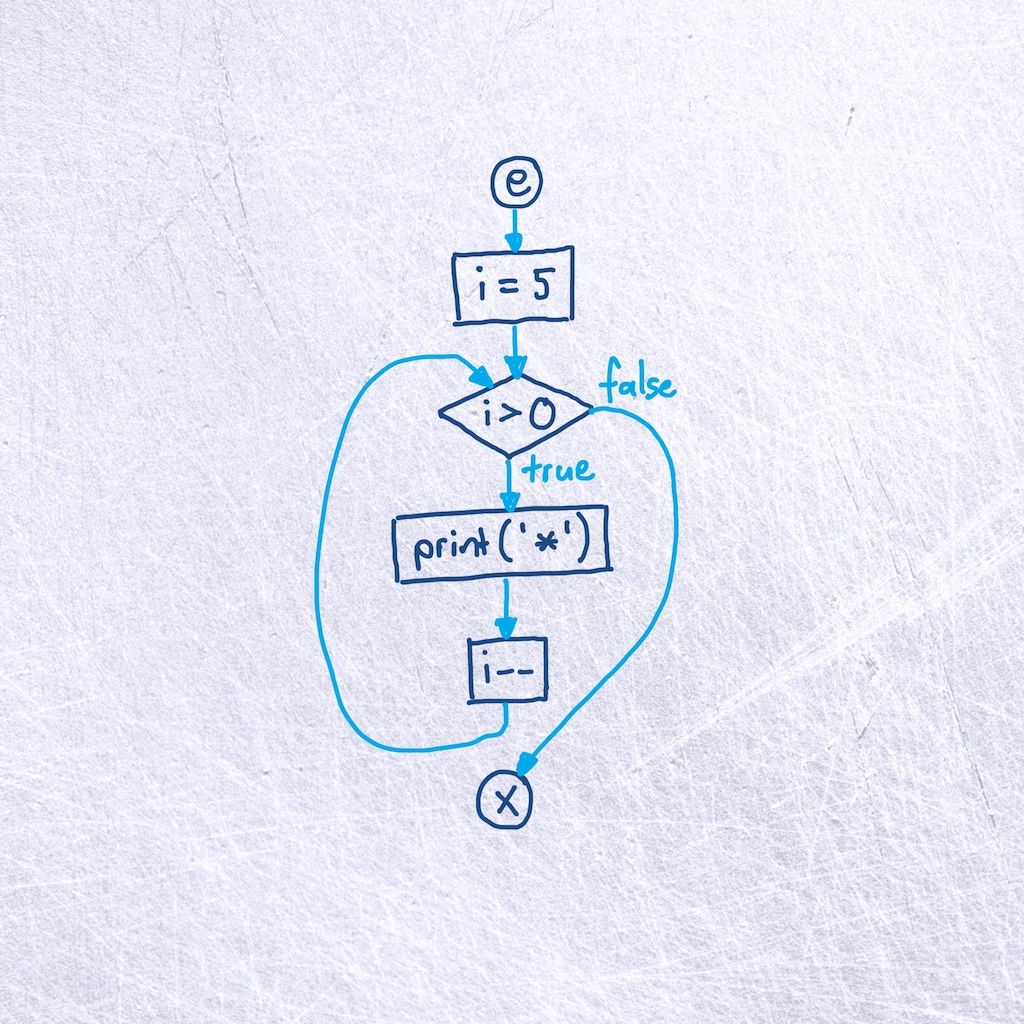 e
i = 5
i > 0
false
true
print('*')
i--
x